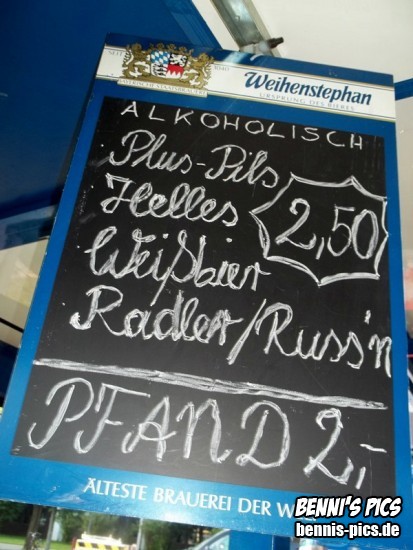 SEIT 1040
BAYERISCHE STAATSBRAUEREI
Weihenstephan
URSPRUNG DES BIERES
ALKOHOLISCH
Plus-Pils
Helles 2,50
Weißbier
Radler/Russ'n
PFAND 2,-
ÄLTESTE BRAUEREI DER W
BENNI'S PICS
bennis-pics.de